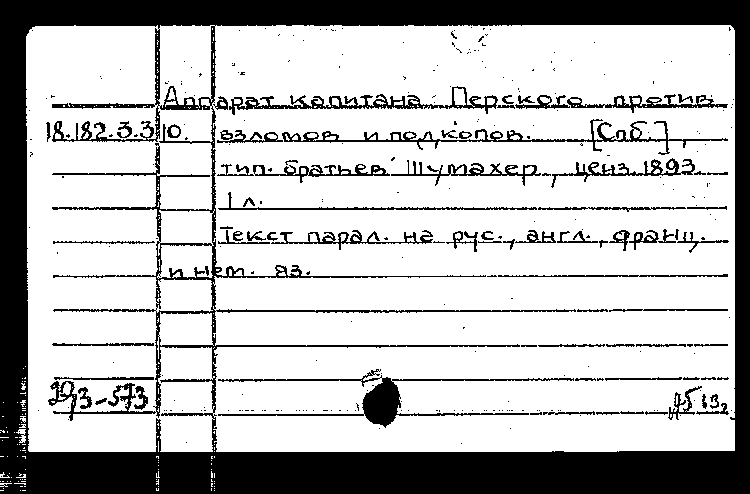 Аппарат капитана Перского против
18.182.3.310. взломов и подкопов. [Спб.],
тип. братьев Шумахер, ценз. 1893.
1 л.
Текст парал. на рус., англ., франц.
и нем. яз.
-573